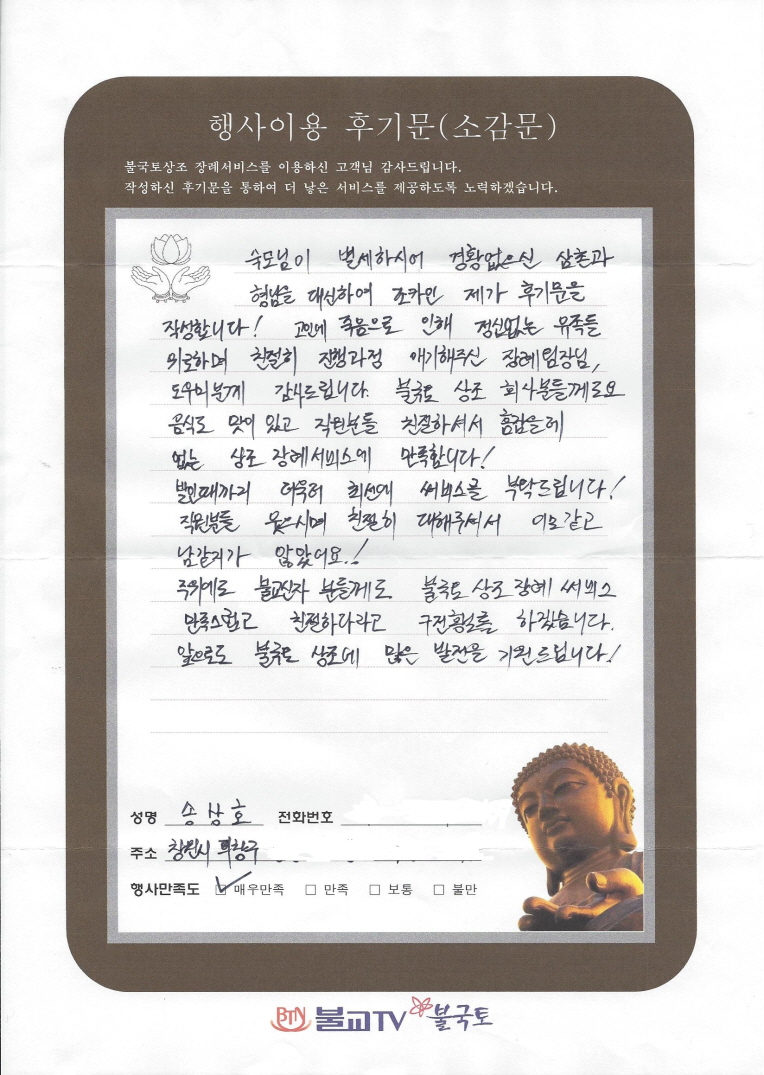 행사이용 후기문(소감문)
불국토상조 장례서비스를 이용하신 고객님 감사드립니다.
작성하신 후기문을 통하여 더 낳은 서비스를 제공하도록 노력하겠습니다.
숙모님이 별세하시어 경황없으신 삼촌과
형님을 대신하여 조카인 제가 후기문을
작성합니다! 고인에 죽음으로 인해 정신없는 유족들
위로하며 친절히 진행과정 얘기해주신 장례팀장님,
도우미분게 감사드립니다. 불국토 상조 회사분들께로요
음식도 맛이 있고 직원분들 친절하셔서 흠잡을데
없는 상조 장례서비스에 만족합니다!
발인때까지 더욱더 최선에 써비스를 부탁드립니다!
직원분들 웃으시며 친절히 대해주셔서 이모같고
남같지가 않았어요.!
주위에도 불교신자 분들께도 불국토 상조 장례 써비스
만족스럽고 친절하다라고 구전홍보를 하겠습니다.
앞으로도 불국토 상조에 많은 발전을 기원드립니다!
성명 송상호 전화번호
주소 창원시 의창구
행사만족도 매우만족 만족 보통 불만
BTN 불교TV 불국토